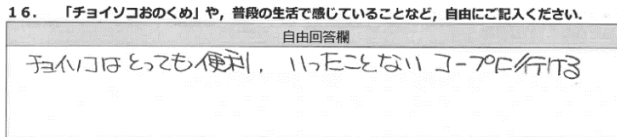 16. 「チョイソコおのくめ」や，普段の生活で感じていることなど，自由にご記入ください．
自由回答欄
チョイソコはとっても便利，いったことないコープに行ける